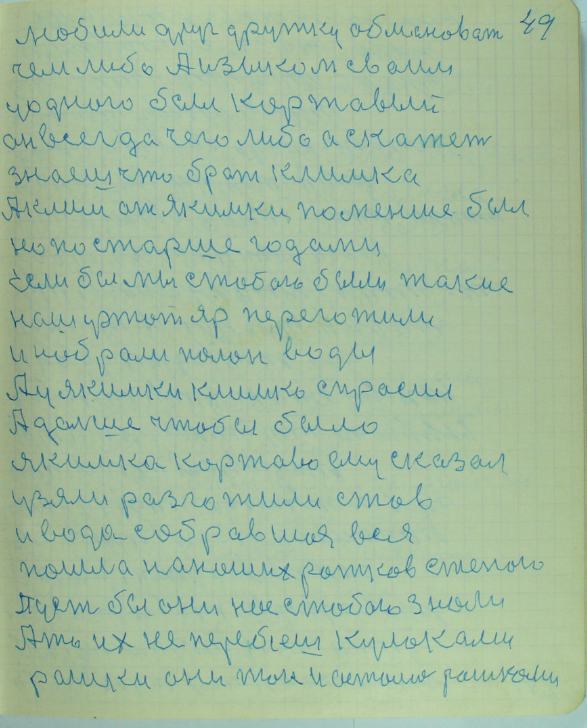 любили друг дружку обмановат 49
чем либо А изъиком своим
у одного был кортавый
он всегда чего либо а скажет
знаеш что брат климка
Аклим от Якимки поменше был
но постарше годами
если бы мы стобою были такие
наш уртот яр перегожили
и набрали полон воды
Ау якимки климко спросил
А далше чтобы было
якимка кортаво ему сказал
узяли разгожили став
и вода собравшая вся
пошла на наших ротков степого
Пуст бы они нас стобою знали
Ато их не перебьеш кулоками
рашки они так и астались рашками